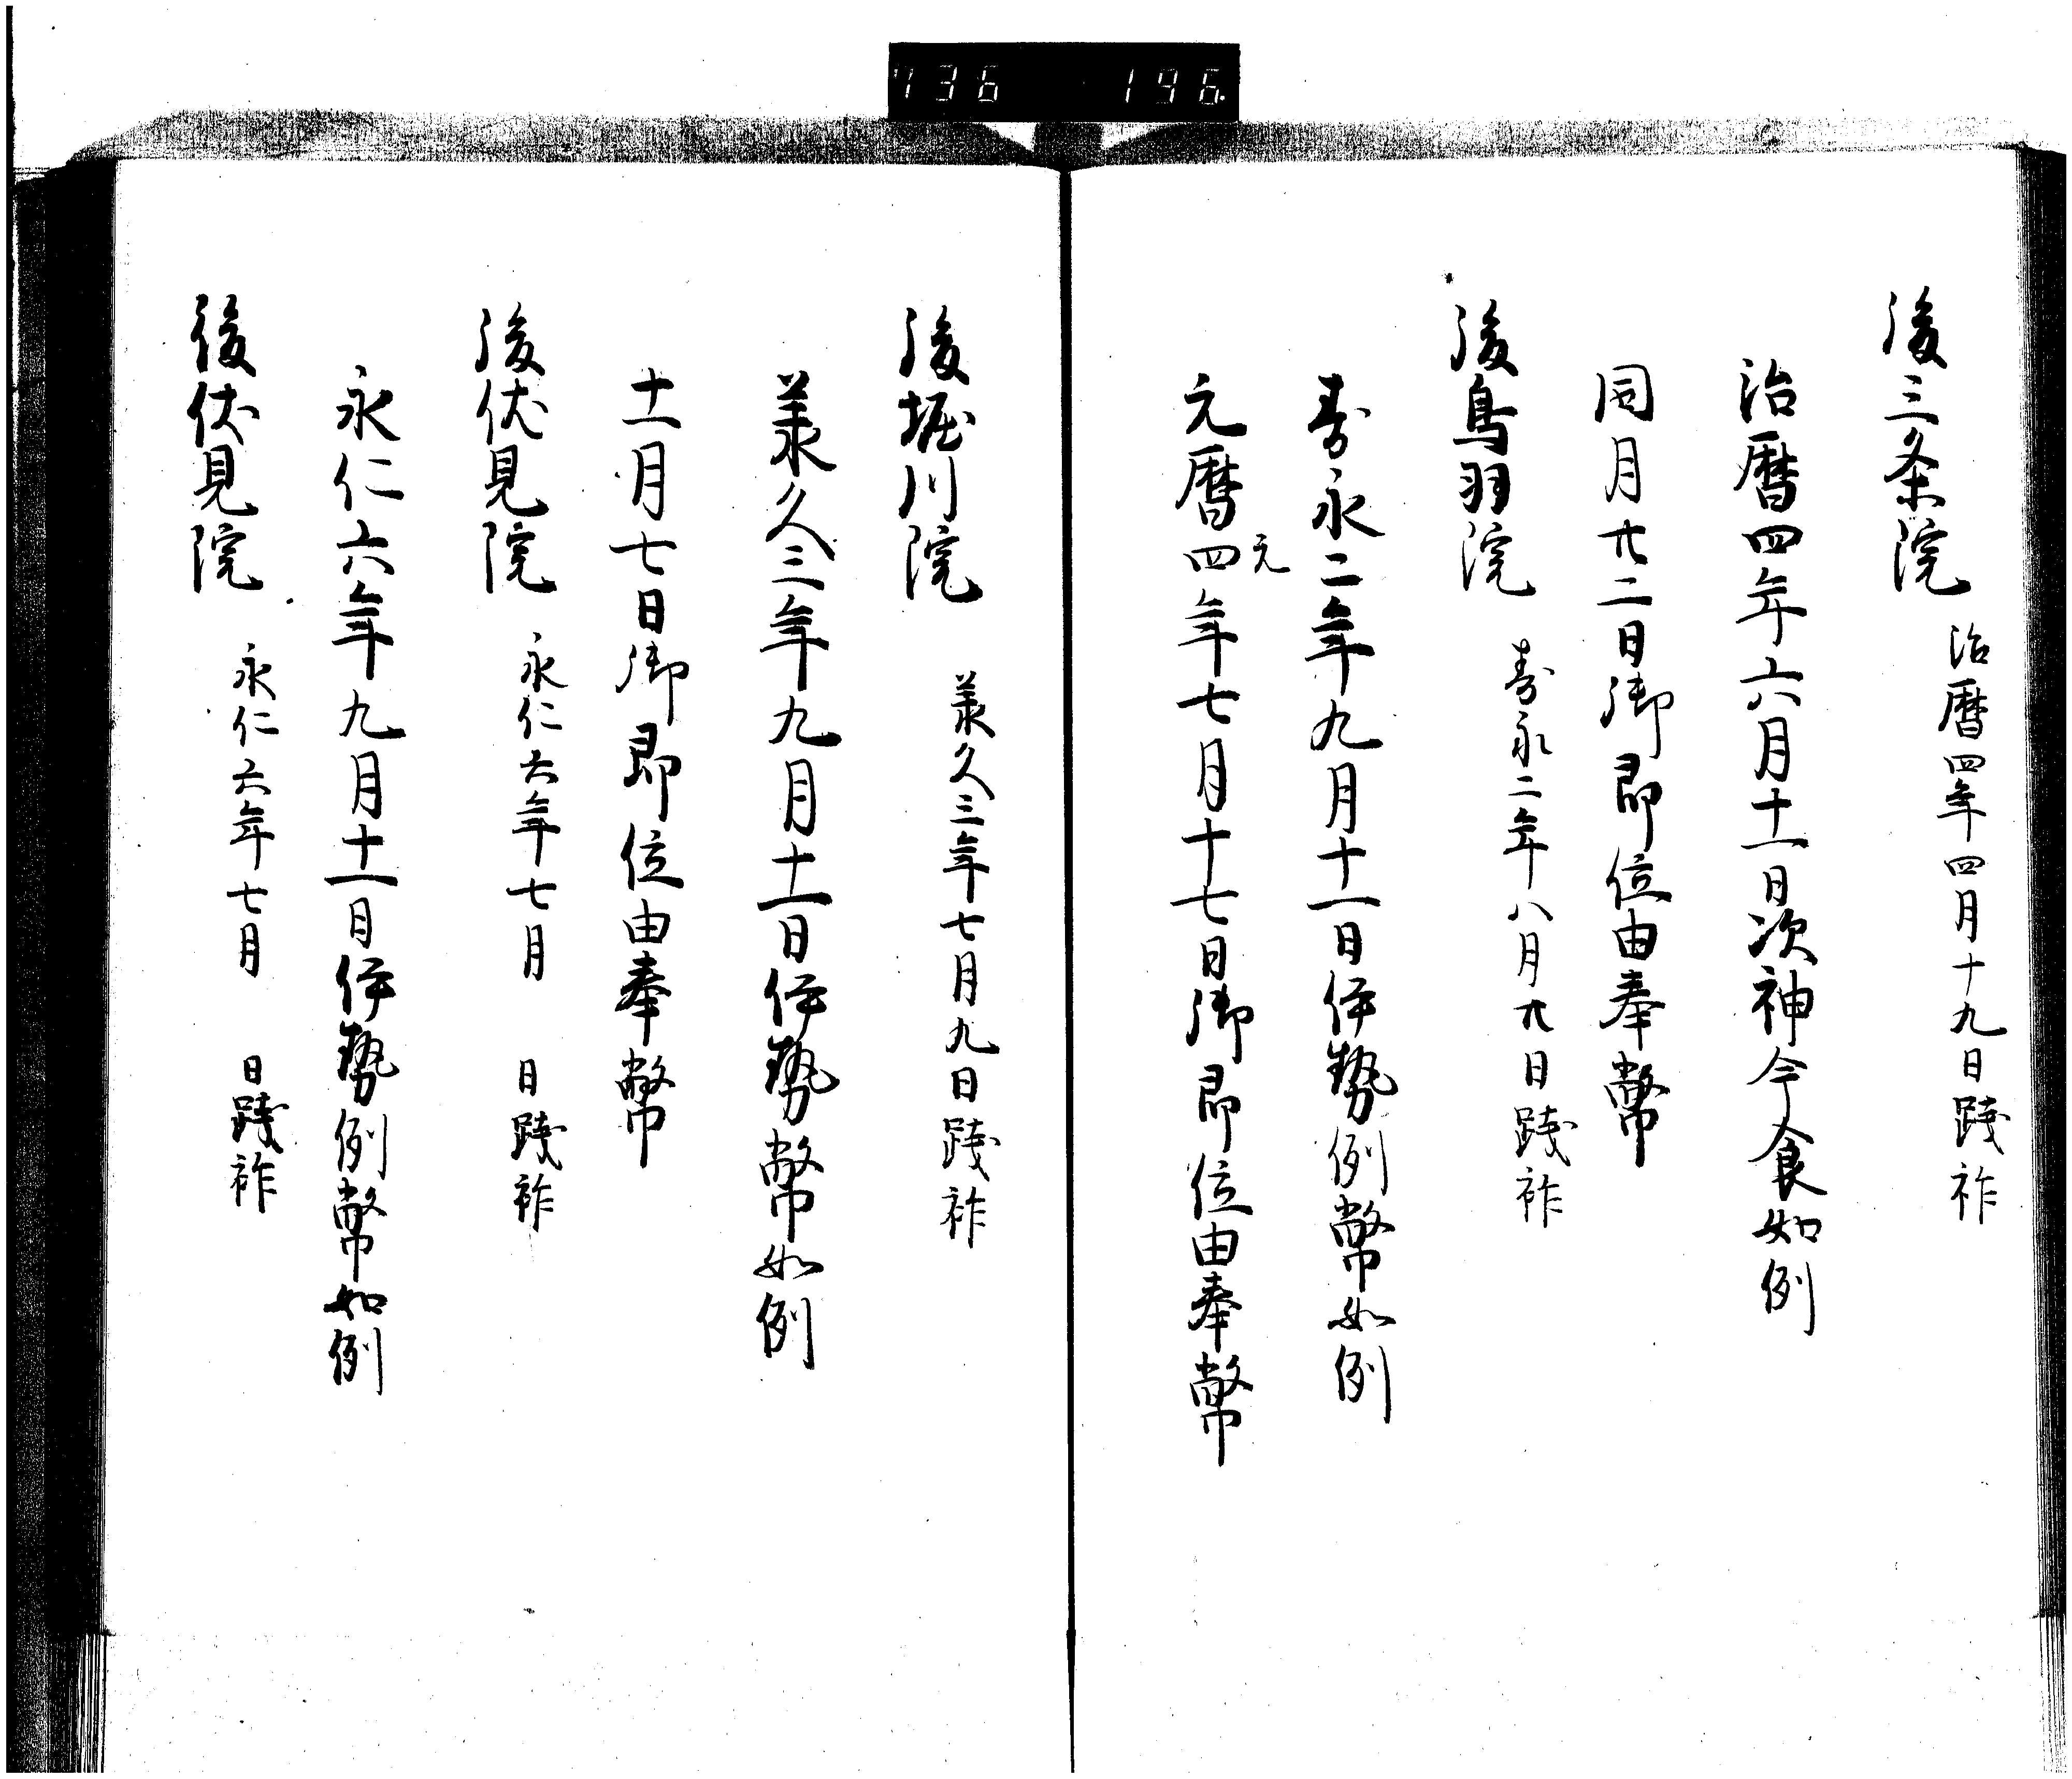 736 196
後三条院 治暦四年四月十九日踐祚
治暦四年六月十一日次神今食如例
同月廿二日御即位由奉幣
後鳥羽院 寿永二年八月廿日踐祚
寿永二年九月十一日伊勢例幣如例
元
元暦四年七月十七日御即位由奉幣
後堀川院 美久三年七月九日踐祚
美久三年九月十一日伊勢幣如例
十一月七日御即位由奉幣
後伏見院 永仁六年七月 日踐祚
永仁六年九月十一日伊勢例幣如例
後伏見院 永仁六年七月 日踐祚